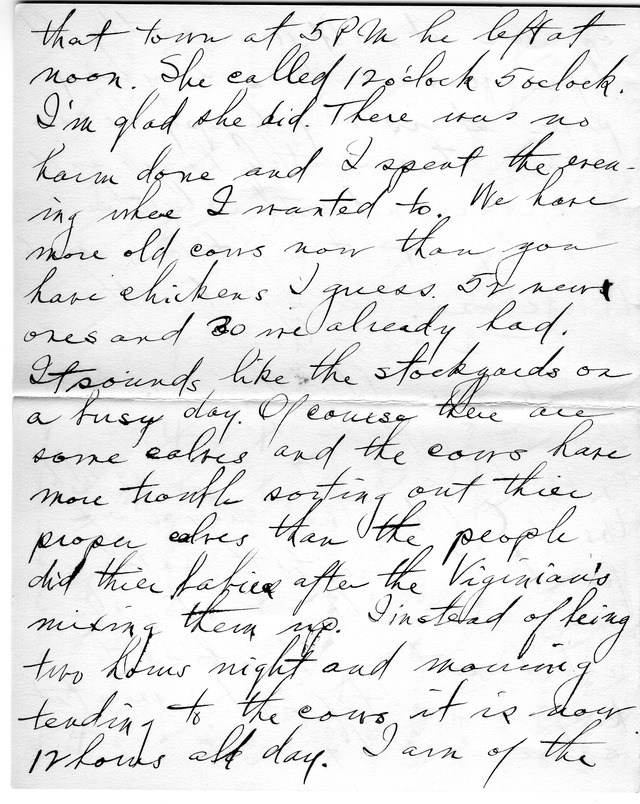 that town at 5 PM he left at
noon. She called 12 o'clock 5 oclock.
I'm glad she did. There was no
harm done and I spent the even-
ing where I wanted to. We have
more old cows now than you
have chickens I guess. 52 new
ones and 30 we already had.
It sounds like the stockyards on
a busy day. Of course there are
some calves and the cows have
more trouble sorting out thier
proper calves than the people
did thier babies after the Viginian's
mixing them up. Instead of being
two hours night and morning
tending to the cows it is now
12 hours all day. I am of the